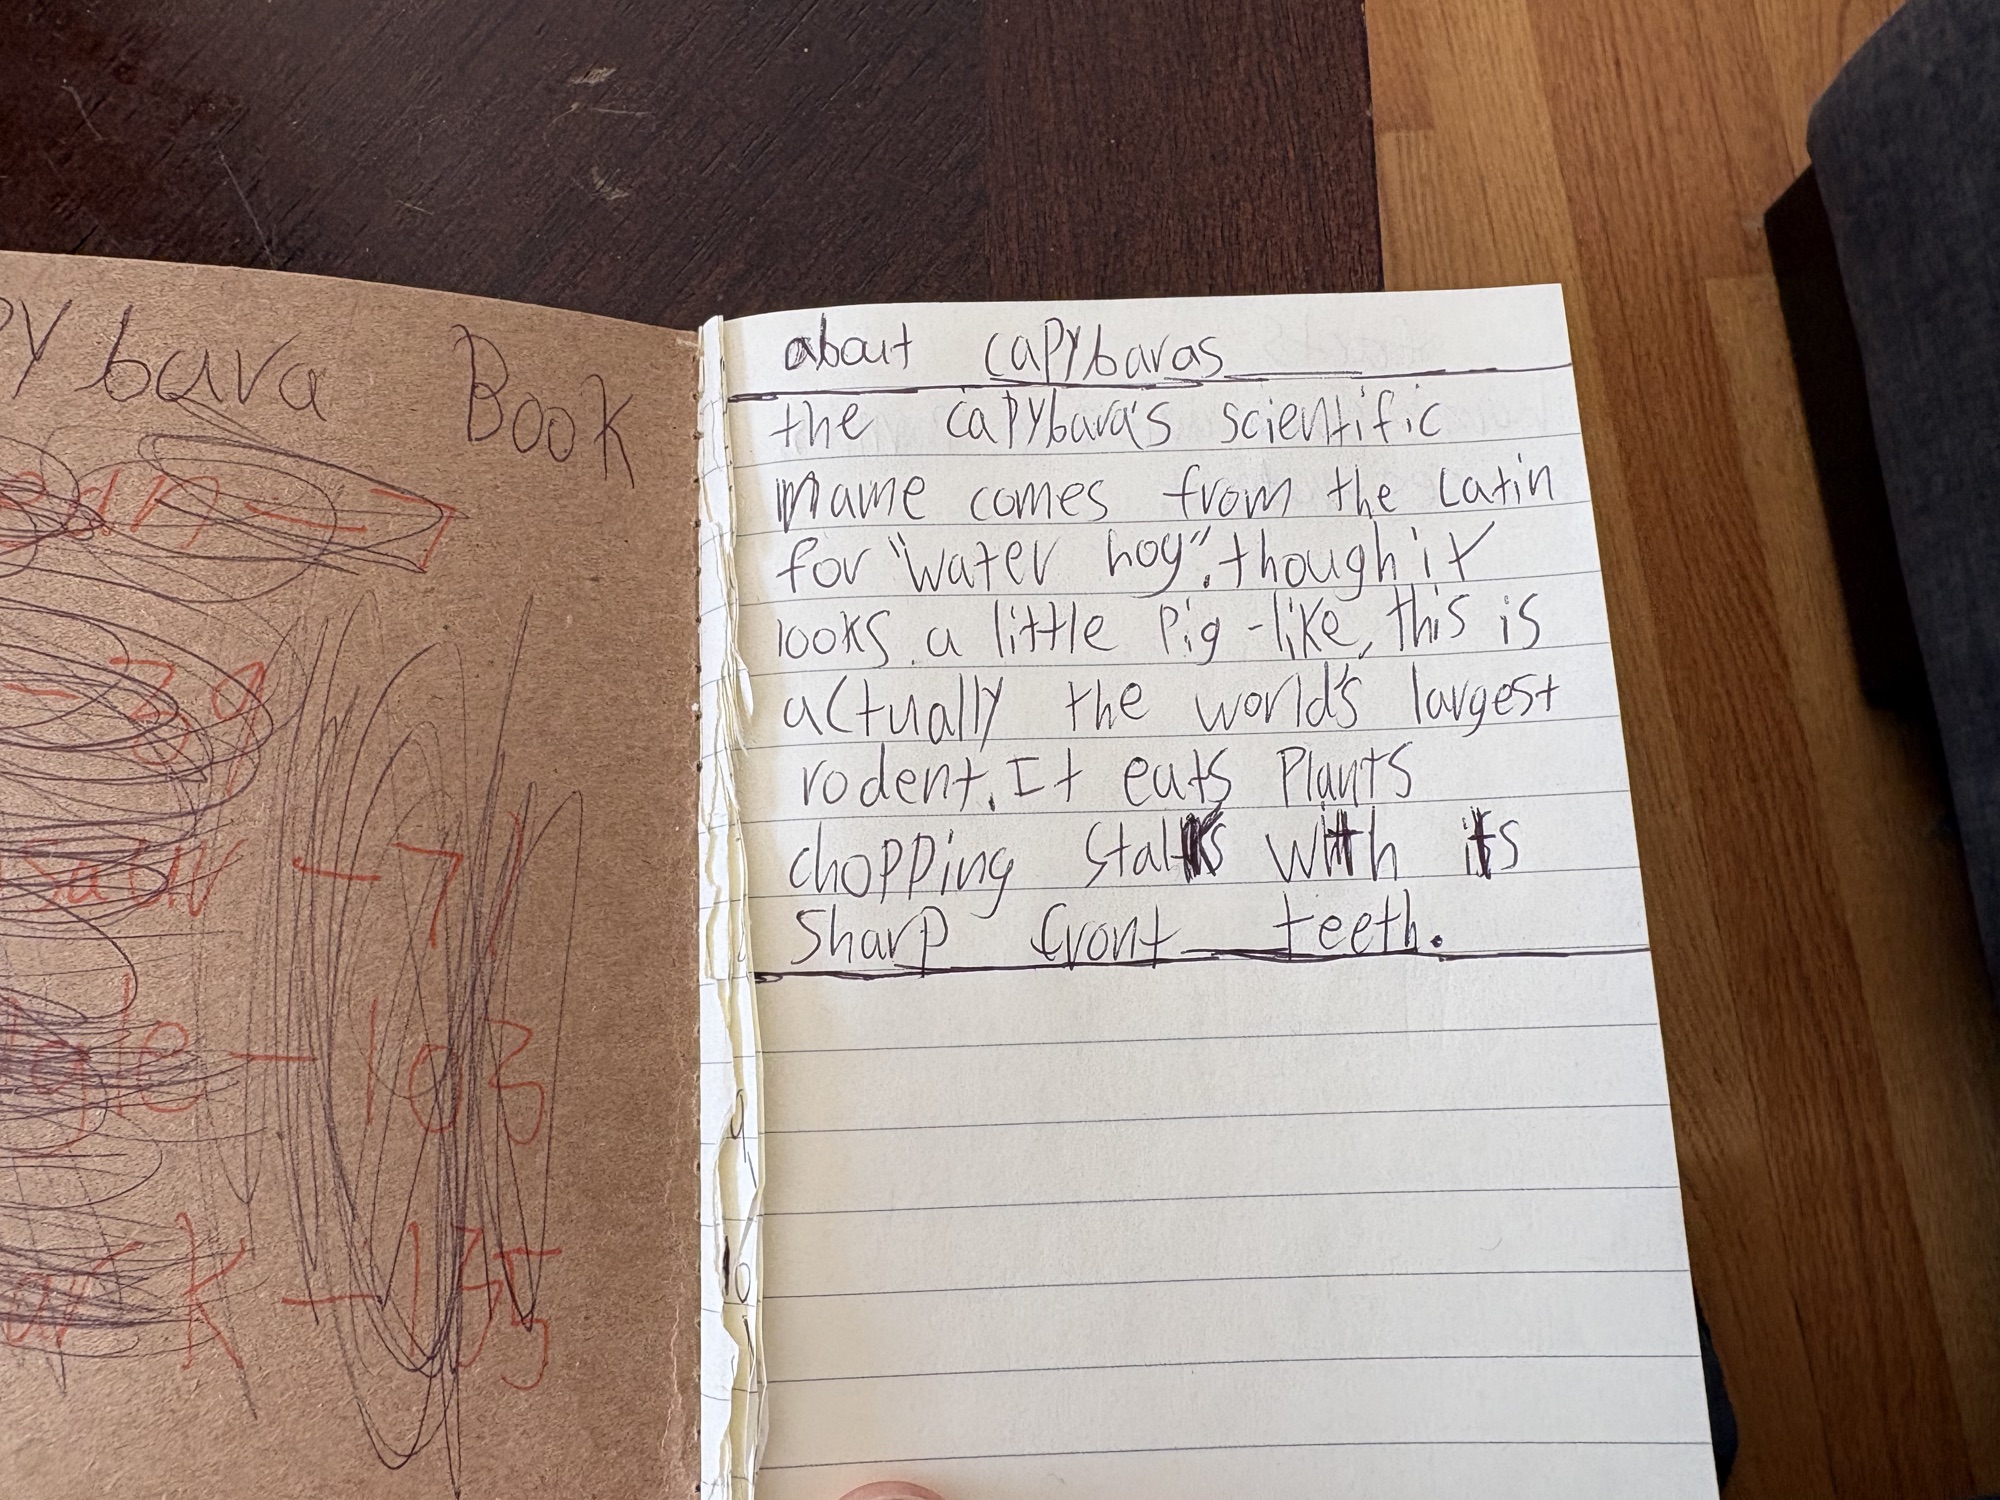 PYbara Book
about capybaras
the capybara's scientific
name comes from the Latin
for "water hog". though it
looks a little pig-like, this is
actually the world's largest
rodent. It eats plants
chopping stalks with its
sharp front teeth.
- 7
- 39
- 7
- 103
K - 135
9
10